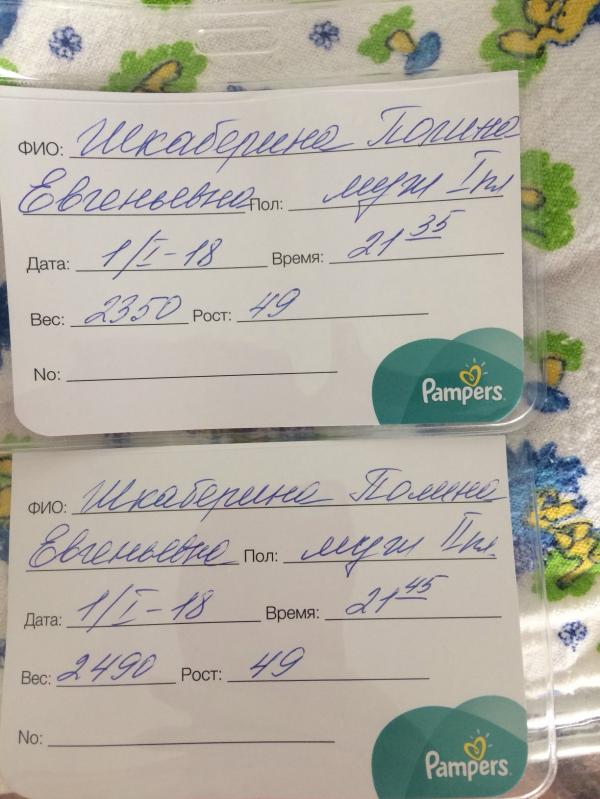 ФИО: Шкаберина Полина
Евгеньевна Пол: муж I пл
Дата: 1/I-18 Время: 21 35
Вес: 2350 Рост: 49
No:
Pampers
ФИО: Шкаберина Полина
Евгеньевна Пол: муж II пл.
Дата: 1/I-18 Время: 21 45
Вес: 2490 Рост: 49
No:
Pampers